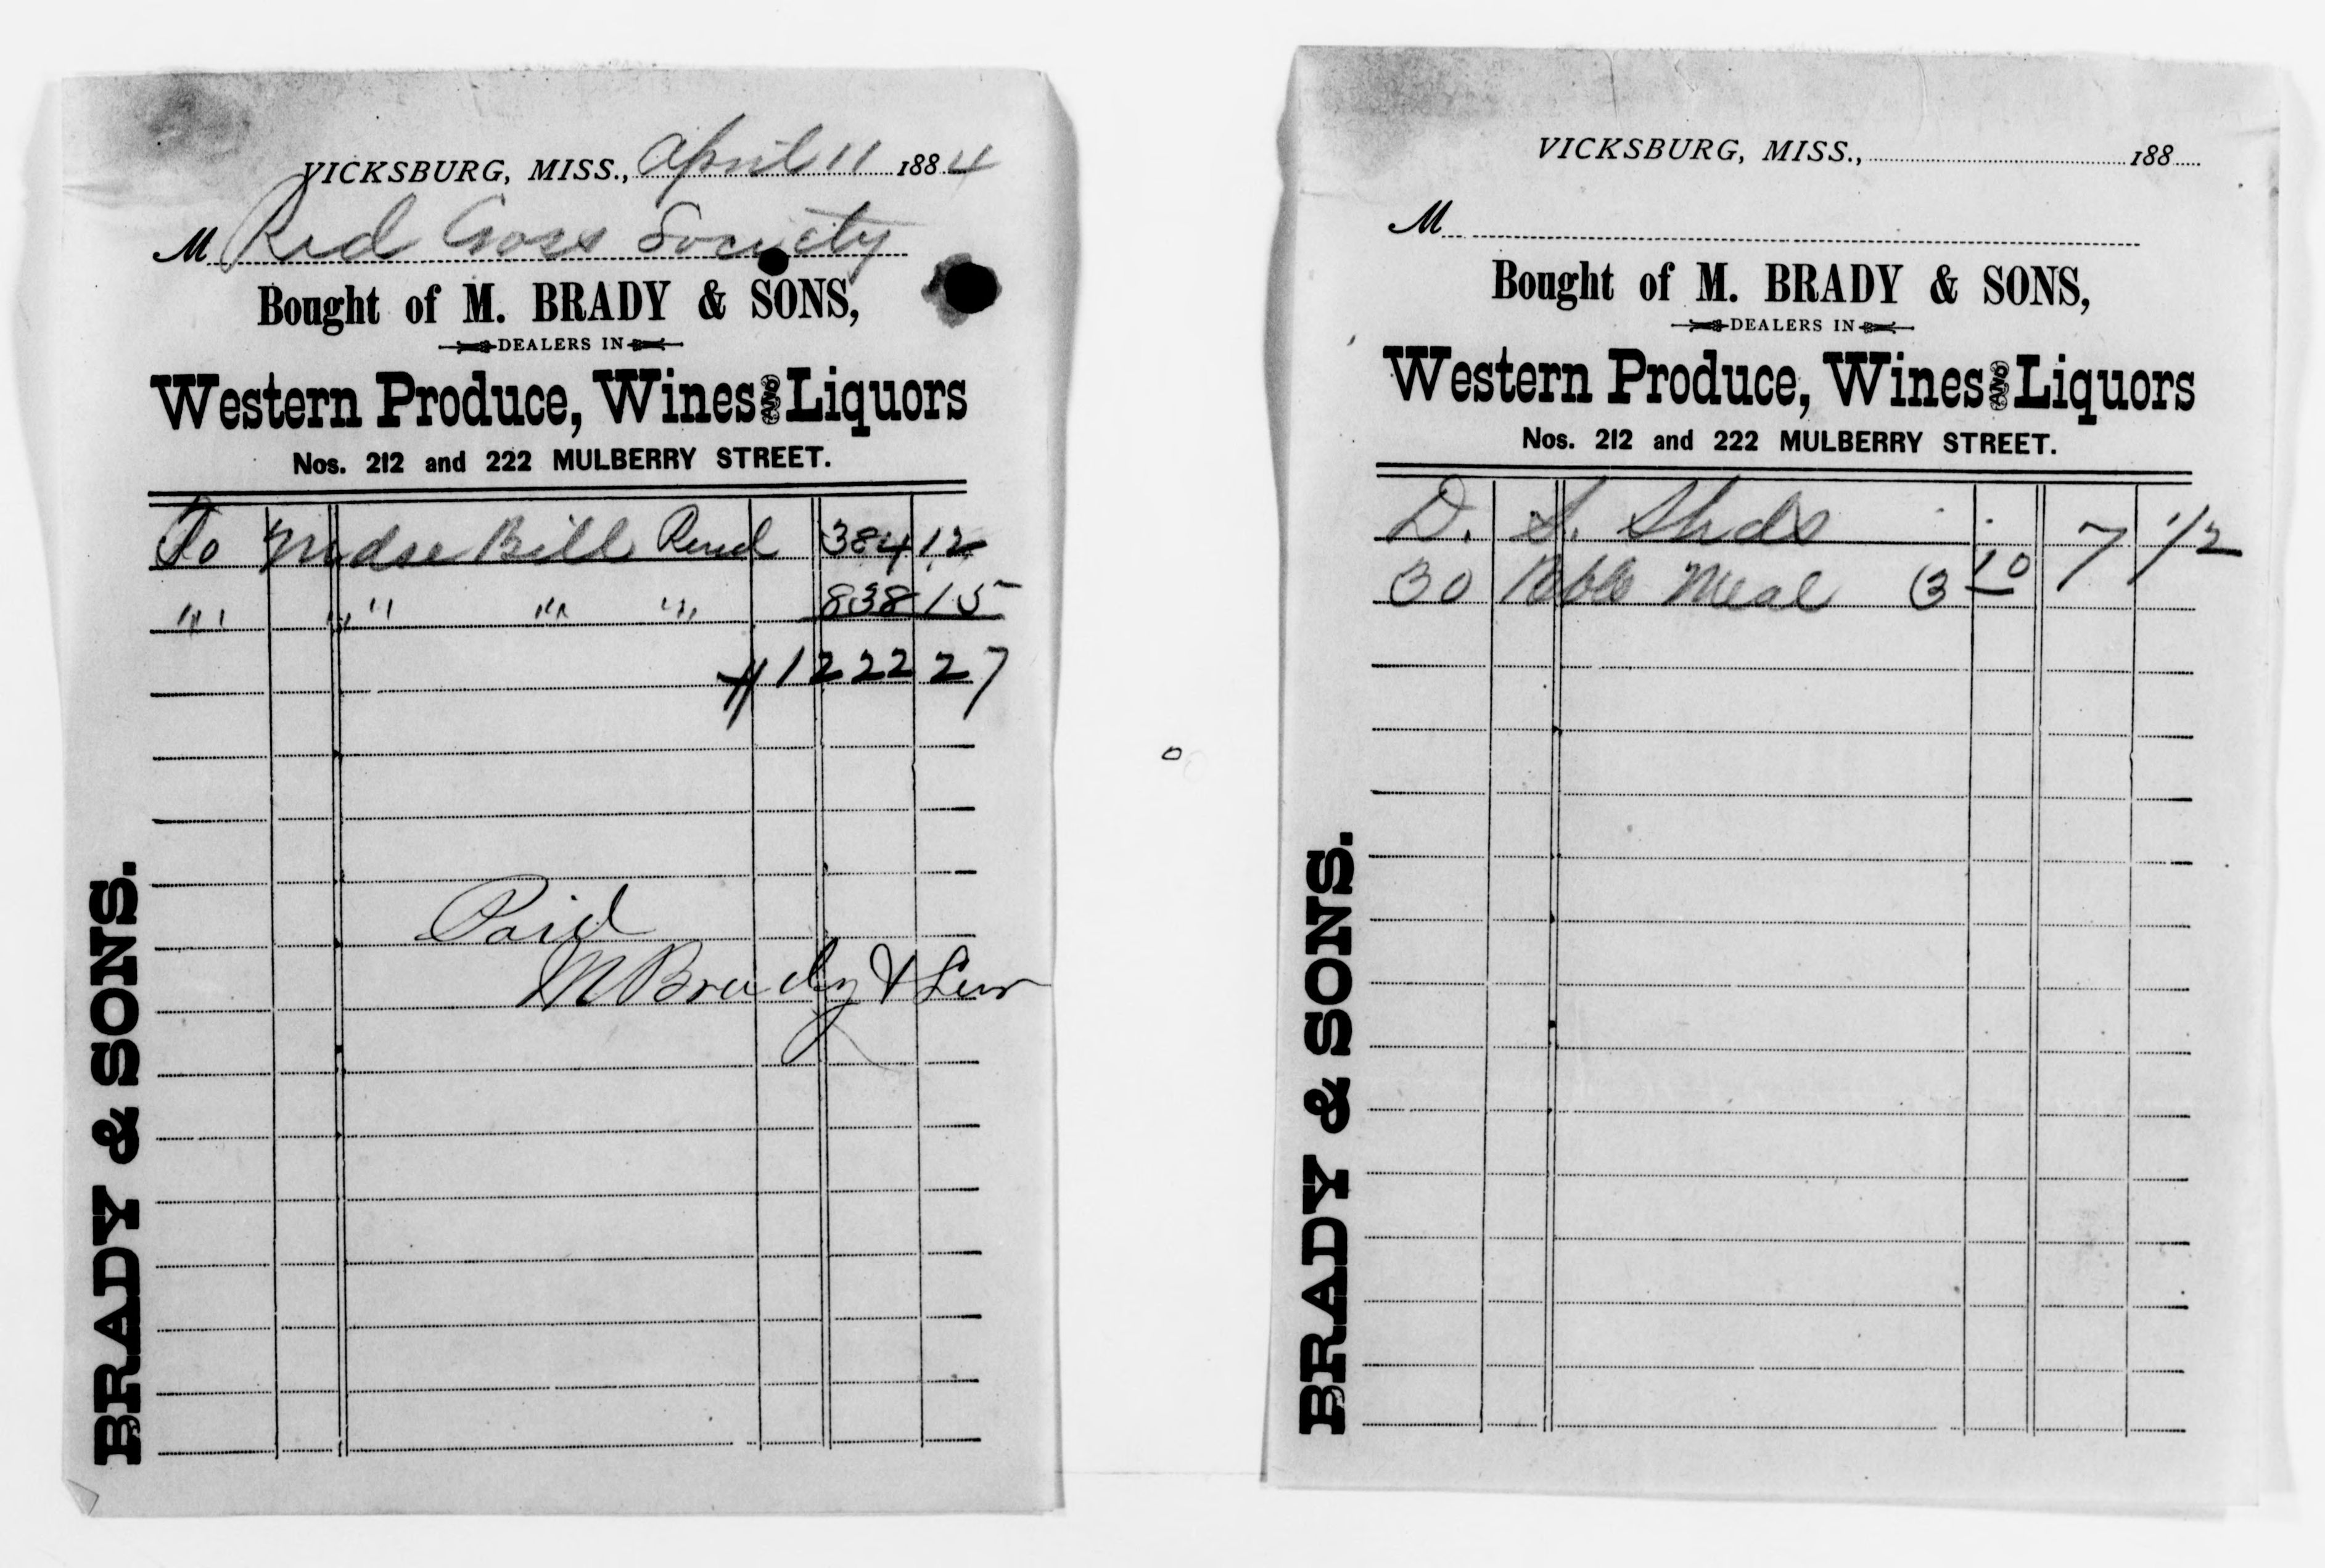 VICKSBURG, MISS., April 11 1884
M Red Cross Society
Bought of M. BRADY & SONS,
DEALERS IN
Western Produce, Wines AND Liquors
Nos. 212 and 222 MULBERRY STREET.
To Mdse Bill Rend 384 12
" " " " 838 15
$1222 27
Paid
M Brady & Sons
BRADY & SONS.
VICKSBURG, MISS., 188
M
Bought of M. BRADY & SONS,
DEALERS IN
Western Produce, Wines AND Liquors
Nos. 212 and 222 MULBERRY STREET.
D. S. Shds 7 1/2
30 Bbls Meal 3 10
BRADY & SONS.